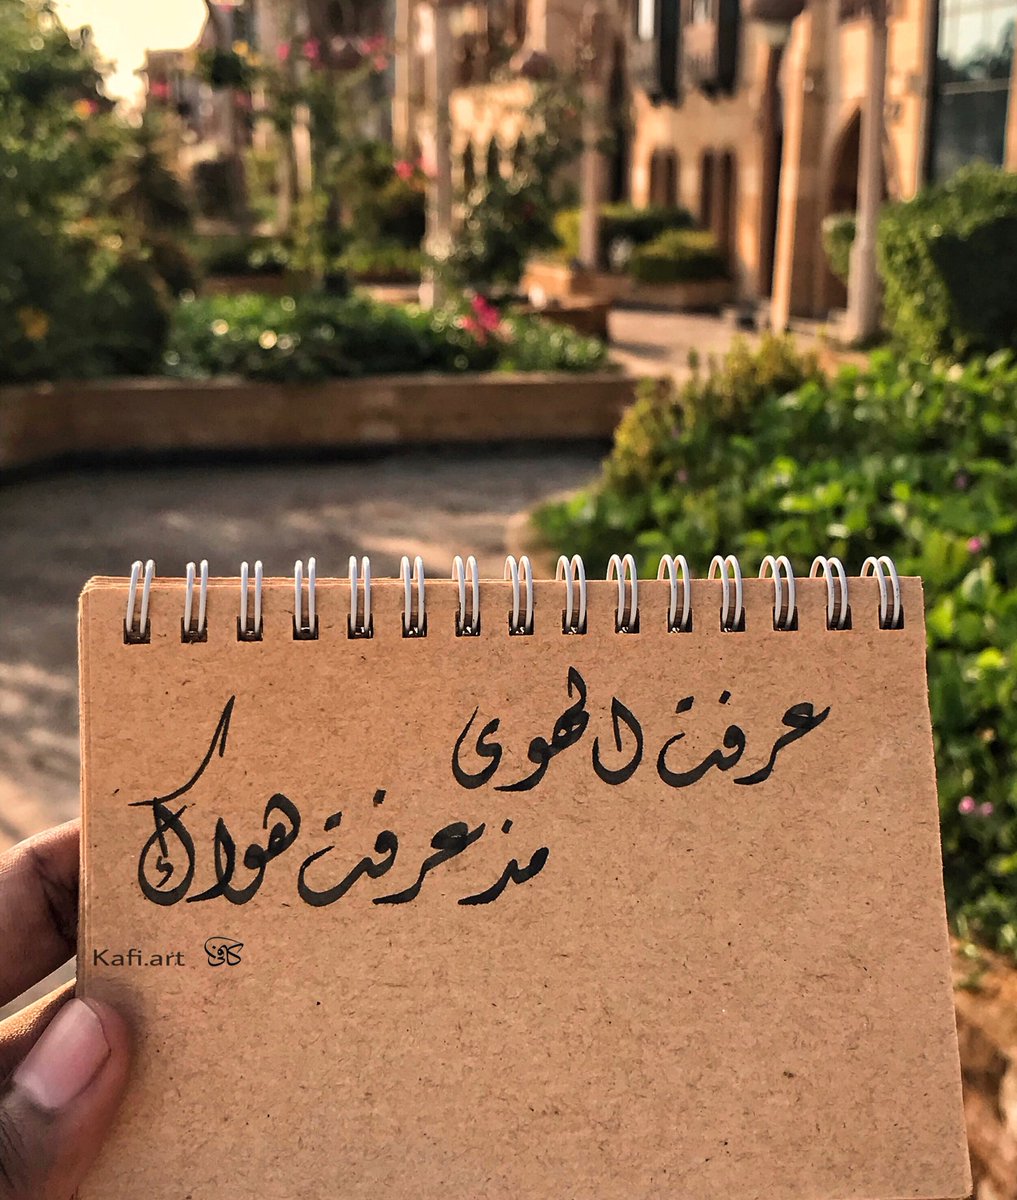 عرفت الهوى
مذ عرفت هواك
Kafi.art